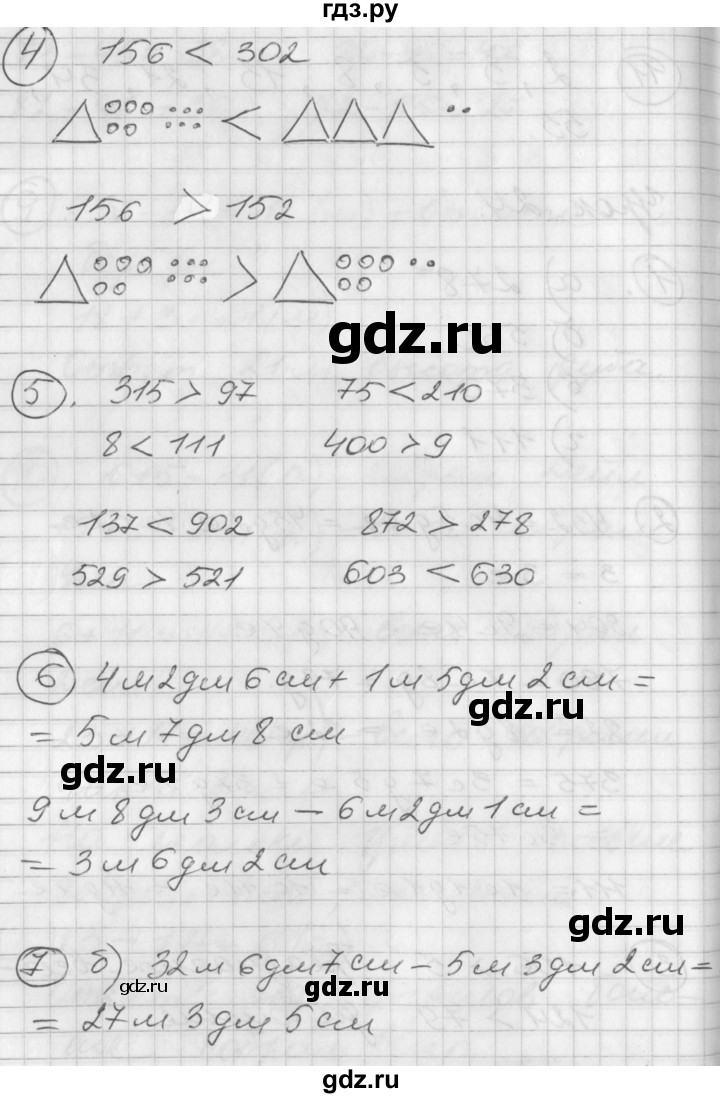 гдз.ру
4 156 < 302
<
156 > 152
>
gdz.ru
5. 315 > 97 75 < 210
8 < 111 400 > 9
137 < 902 872 > 278
529 > 521 603 < 630
6 4 м 2 дм 6 см + 1 м 5 дм 2 см =
gdz.ru
= 5 м 7 дм 8 см
gdz.ru
9 м 8 дм 3 см – 6 м 2 дм 1 см =
= 3 м 6 дм 2 см
gdz.ru
7 б) 32 м 6 дм 7 см – 5 м 3 дм 2 см =
gdz.ru gdz.ru
= 27 м 3 дм 5 см
gdz.ru